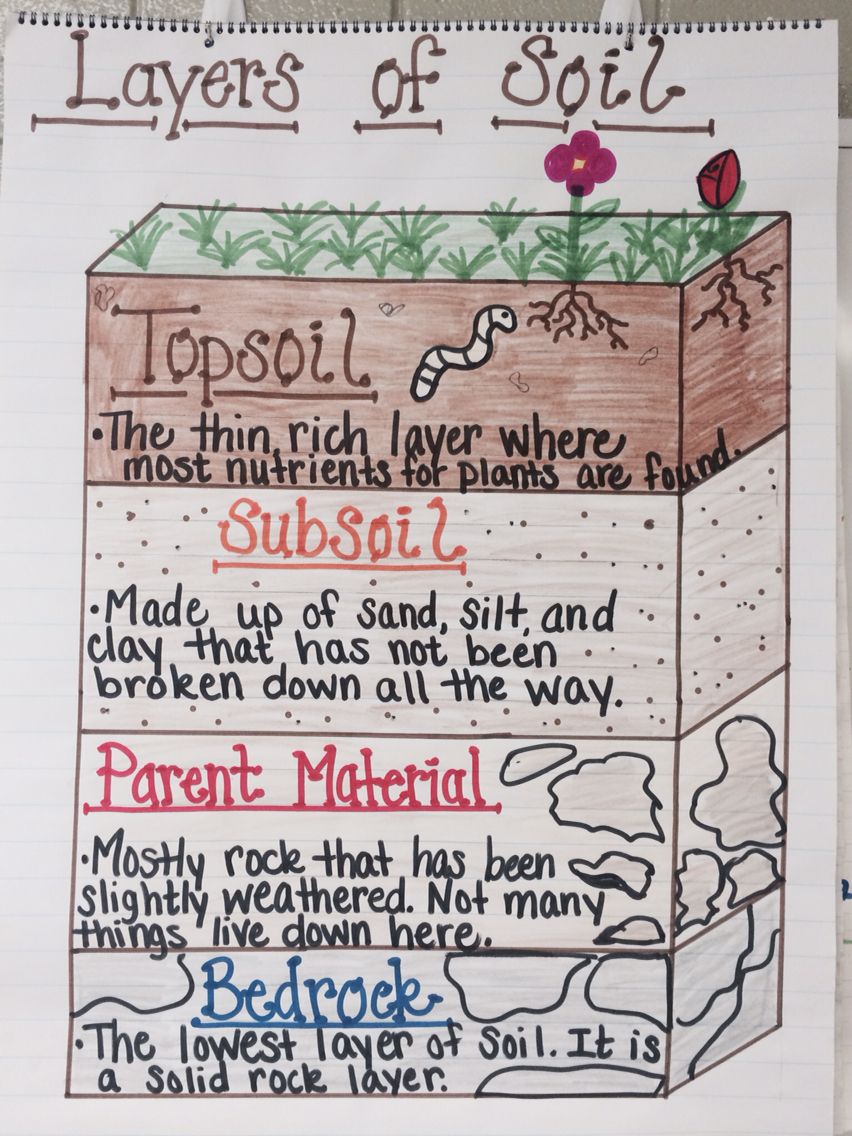 Layers of Soil
Topsoil
•The thin, rich layer where
most nutrients for plants are found.
Subsoil
•Made up of sand, silt, and
clay that has not been
broken down all the way.
Parent Material
•Mostly rock that has been
slightly weathered. Not many
things live down here.
Bedrock
•The lowest layer of soil. It is
a solid rock layer.